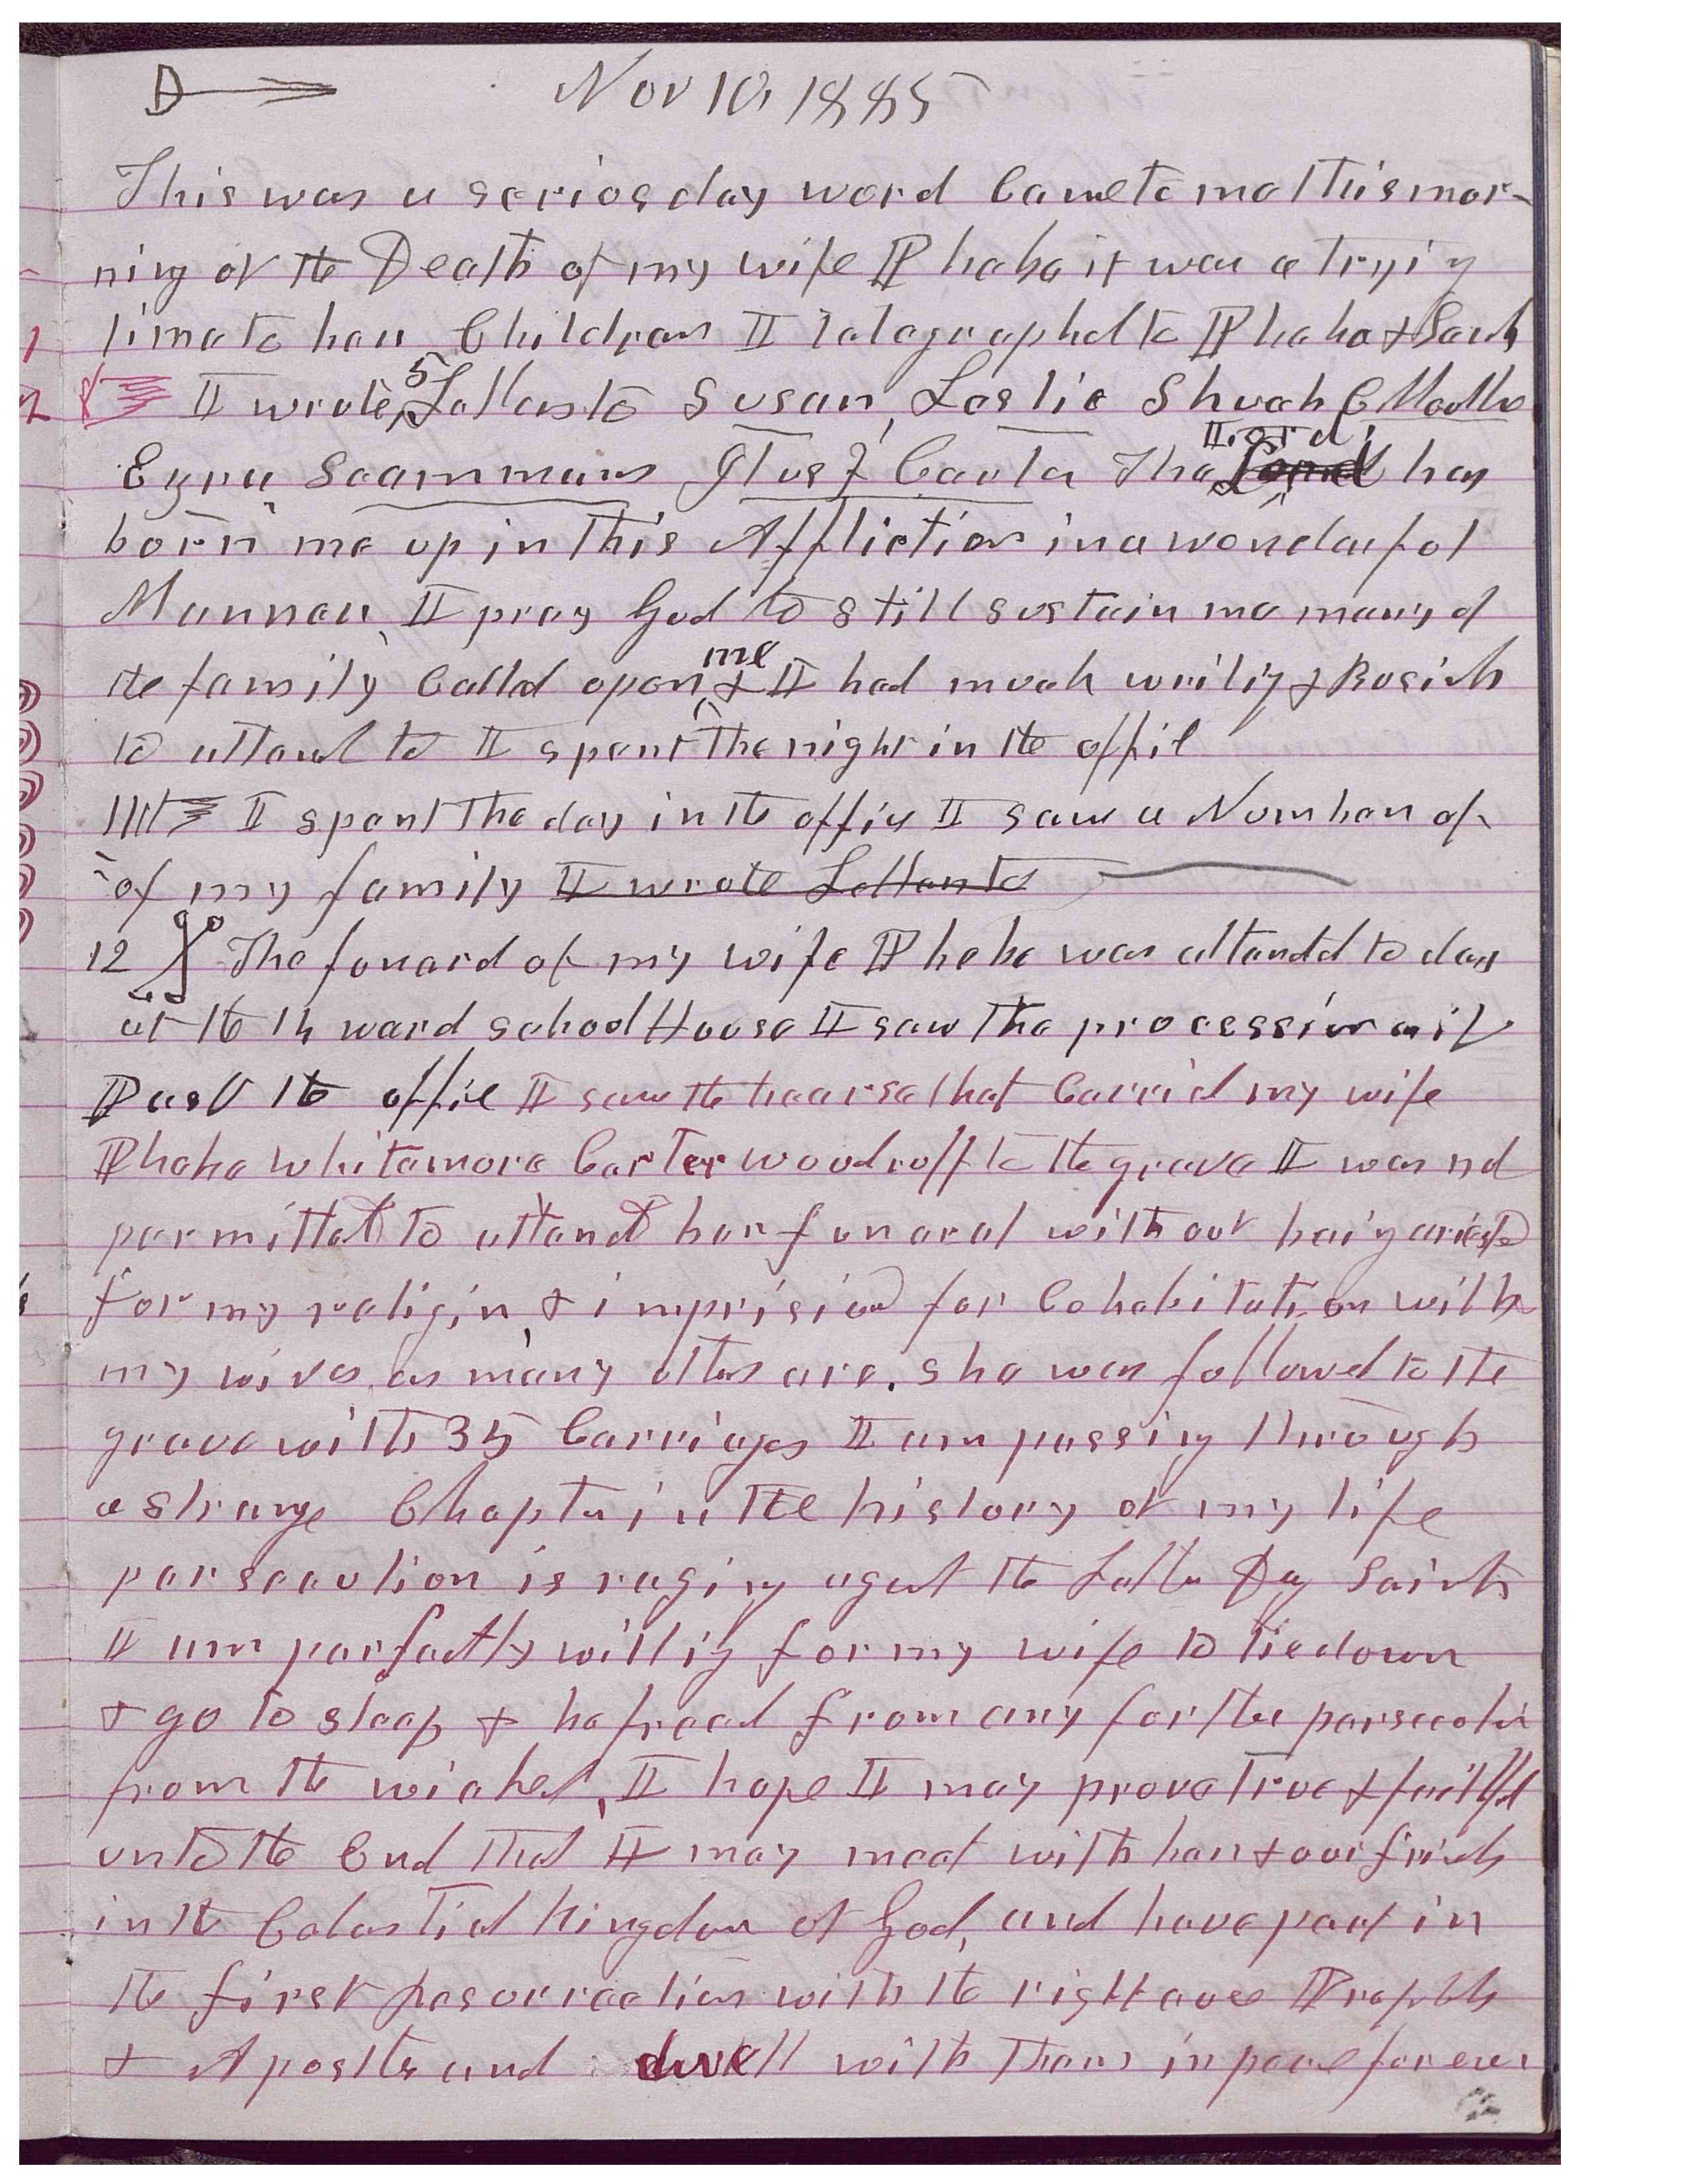 D Nov 10, 1885
This was a serios day word Came to me this mor-
ning of the Death of my wife Phebe it was a tryig
time to her Children I telegraphed to Phebe & Sarah
I wrote 5 Letters to Susan, Leslie Shuah C Moulton
Ezra Scammans Ilus F Carter The Lord has
born me up in this Affliction in a wonderful
Manner, I pray God to still sustain me many of
the family Called upon me & I had much writig & Busins
to attend to I spent the night in the offic
11th I spent the day in the office I saw a Number of
of my family I wrote Letters to
12 The funerel of my wife Phebe was attended to day
at the 14 ward school House I saw the procession as it
Past the offic I saw the hearse that Carried my wife
Phebe whitemore Carter woodruff to the grave I was not
permitted to attend her funeral without being arested
for my religin, & imprisioned for Cohabitation with
my wives, as many others are. she was followed to the
grave with 35 Carriages I am passing through
a strange Chapter in the history of my life
persecution is raging agast the Latter Day Saints
I am perfectly willig for my wife to lie down
& go to sleep & be freed from any further persecution
from the wicked, I hope I may prove true & faithful
unto the End that I may meet with her & our friends
in the Celestial kingdom of God, and have part in
the first resurrection with the righteous Prophets
& Apostles and dwell with them in peace forever